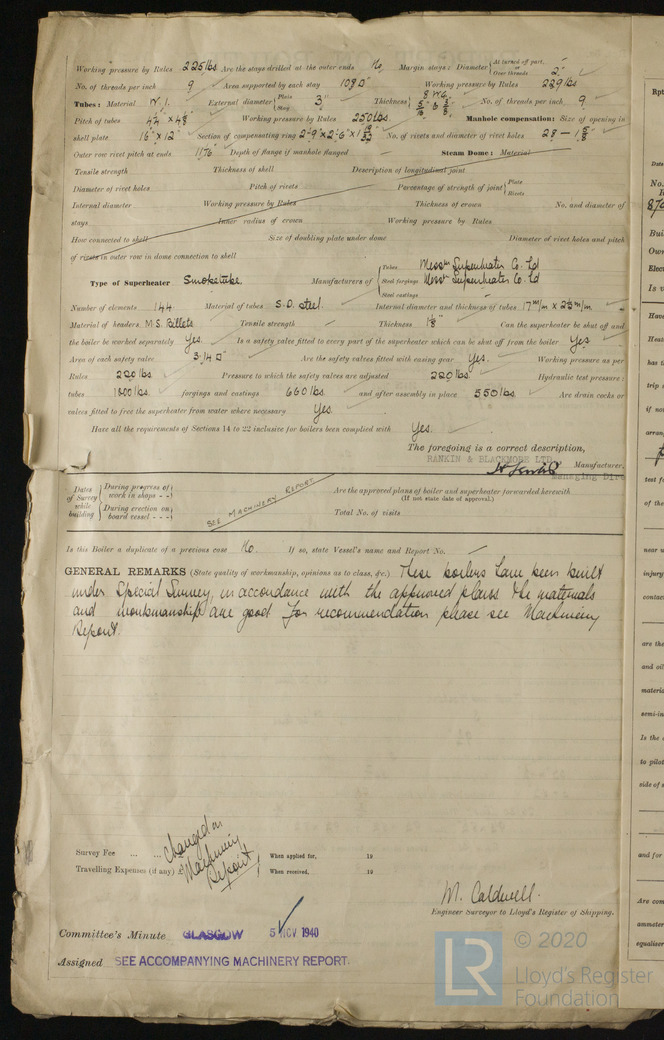 Working pressure by Rules 225 lbs Are the stays drilled at the outer ends No. Margin stays: Diameter { At turned off part, or Over threads 2"
No. of threads per inch 9 Area supported by each stay 108 □" Working pressure by Rules 229 lbs
Tubes: Material W.I. External diameter { Plain Stay 3" Thickness { 8 W.G. No. of threads per inch 9
Pitch of tubes Working pressure by Rules 250 lbs. Manhole compensation: Size of opening in
shell plate 16" x 12" Section of compensating ring No. of rivets and diameter of rivet holes 28 —
Outer row rivet pitch at ends Depth of flange if manhole flanged Steam Dome: Material
Tensile strength Thickness of shell Description of longitudinal joint
Diameter of rivet holes Pitch of rivets Percentage of strength of joint { Plate Rivets
Internal diameter Working pressure by Rules Thickness of crown No. and diameter of
stays Inner radius of crown Working pressure by Rules
How connected to shell Size of doubling plate under dome Diameter of rivet holes and pitch
of rivets in outer row in dome connection to shell
Type of Superheater Smoketube. Manufacturers of { Tubes Messrs Superheater Co. Ltd
Steel forgings Messrs Superheater Co. Ltd
Steel castings
Number of elements 144 Material of tubes S.D. steel. Internal diameter and thickness of tubes 17 m/m x 2½ m/m.
Material of headers M.S. Billets Tensile strength Thickness 1⅛" Can the superheater be shut off and
the boiler be worked separately Yes. Is a safety valve fitted to every part of the superheater which can be shut off from the boiler Yes
Area of each safety valve 3.14 □" Are the safety valves fitted with easing gear Yes. Working pressure as per
Rules 220 lbs Pressure to which the safety valves are adjusted 220 lbs. Hydraulic test pressure:
tubes lbs. forgings and castings 660 lbs and after assembly in place 550 lbs Are drain cocks or
valves fitted to free the superheater from water where necessary Yes.
Have all the requirements of Sections 14 to 22 inclusive for boilers been complied with Yes.
The foregoing is a correct description,
RANKIN & BLACKMORE LTD
Manufacturer.
Managing Dire
Dates of Survey while building { During progress of work in shops - - } SEE MACHINERY REPORT. Are the approved plans of boiler and superheater forwarded herewith
(If not state date of approval.)
{ During erection on board vessel - - - } Total No. of visits
Is this Boiler a duplicate of a previous case No. If so, state Vessel's name and Report No. —
GENERAL REMARKS (State quality of workmanship, opinions as to class, &c.) These boilers have been built
under Special Survey, in accordance with the approved plans. The materials
and workmanship are good for recommendation please see Machinery
Report.
Survey Fee ... ... Charged on When applied for, 19
Travelling Expenses (if any) £ Machinery Report When received, 19
M. Caldwell.
Engineer Surveyor to Lloyd's Register of Shipping.
Committee's Minute GLASGOW 5 NOV 1940
Assigned SEE ACCOMPANYING MACHINERY REPORT.
LR © 2020
Lloyd's Register
Foundation